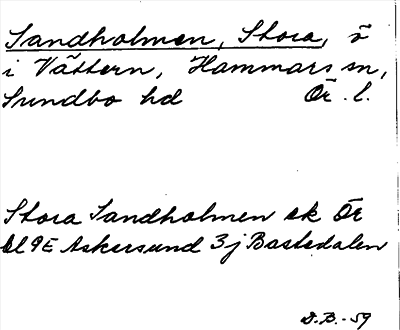 Sandholmen, Stora, ö
i Vättern, Hammars sn,
Sundbo hd Ör. l.
Stora Sandholmen ek Ör
bl 9E Askersund 3j Bastedalen
D.B. -59